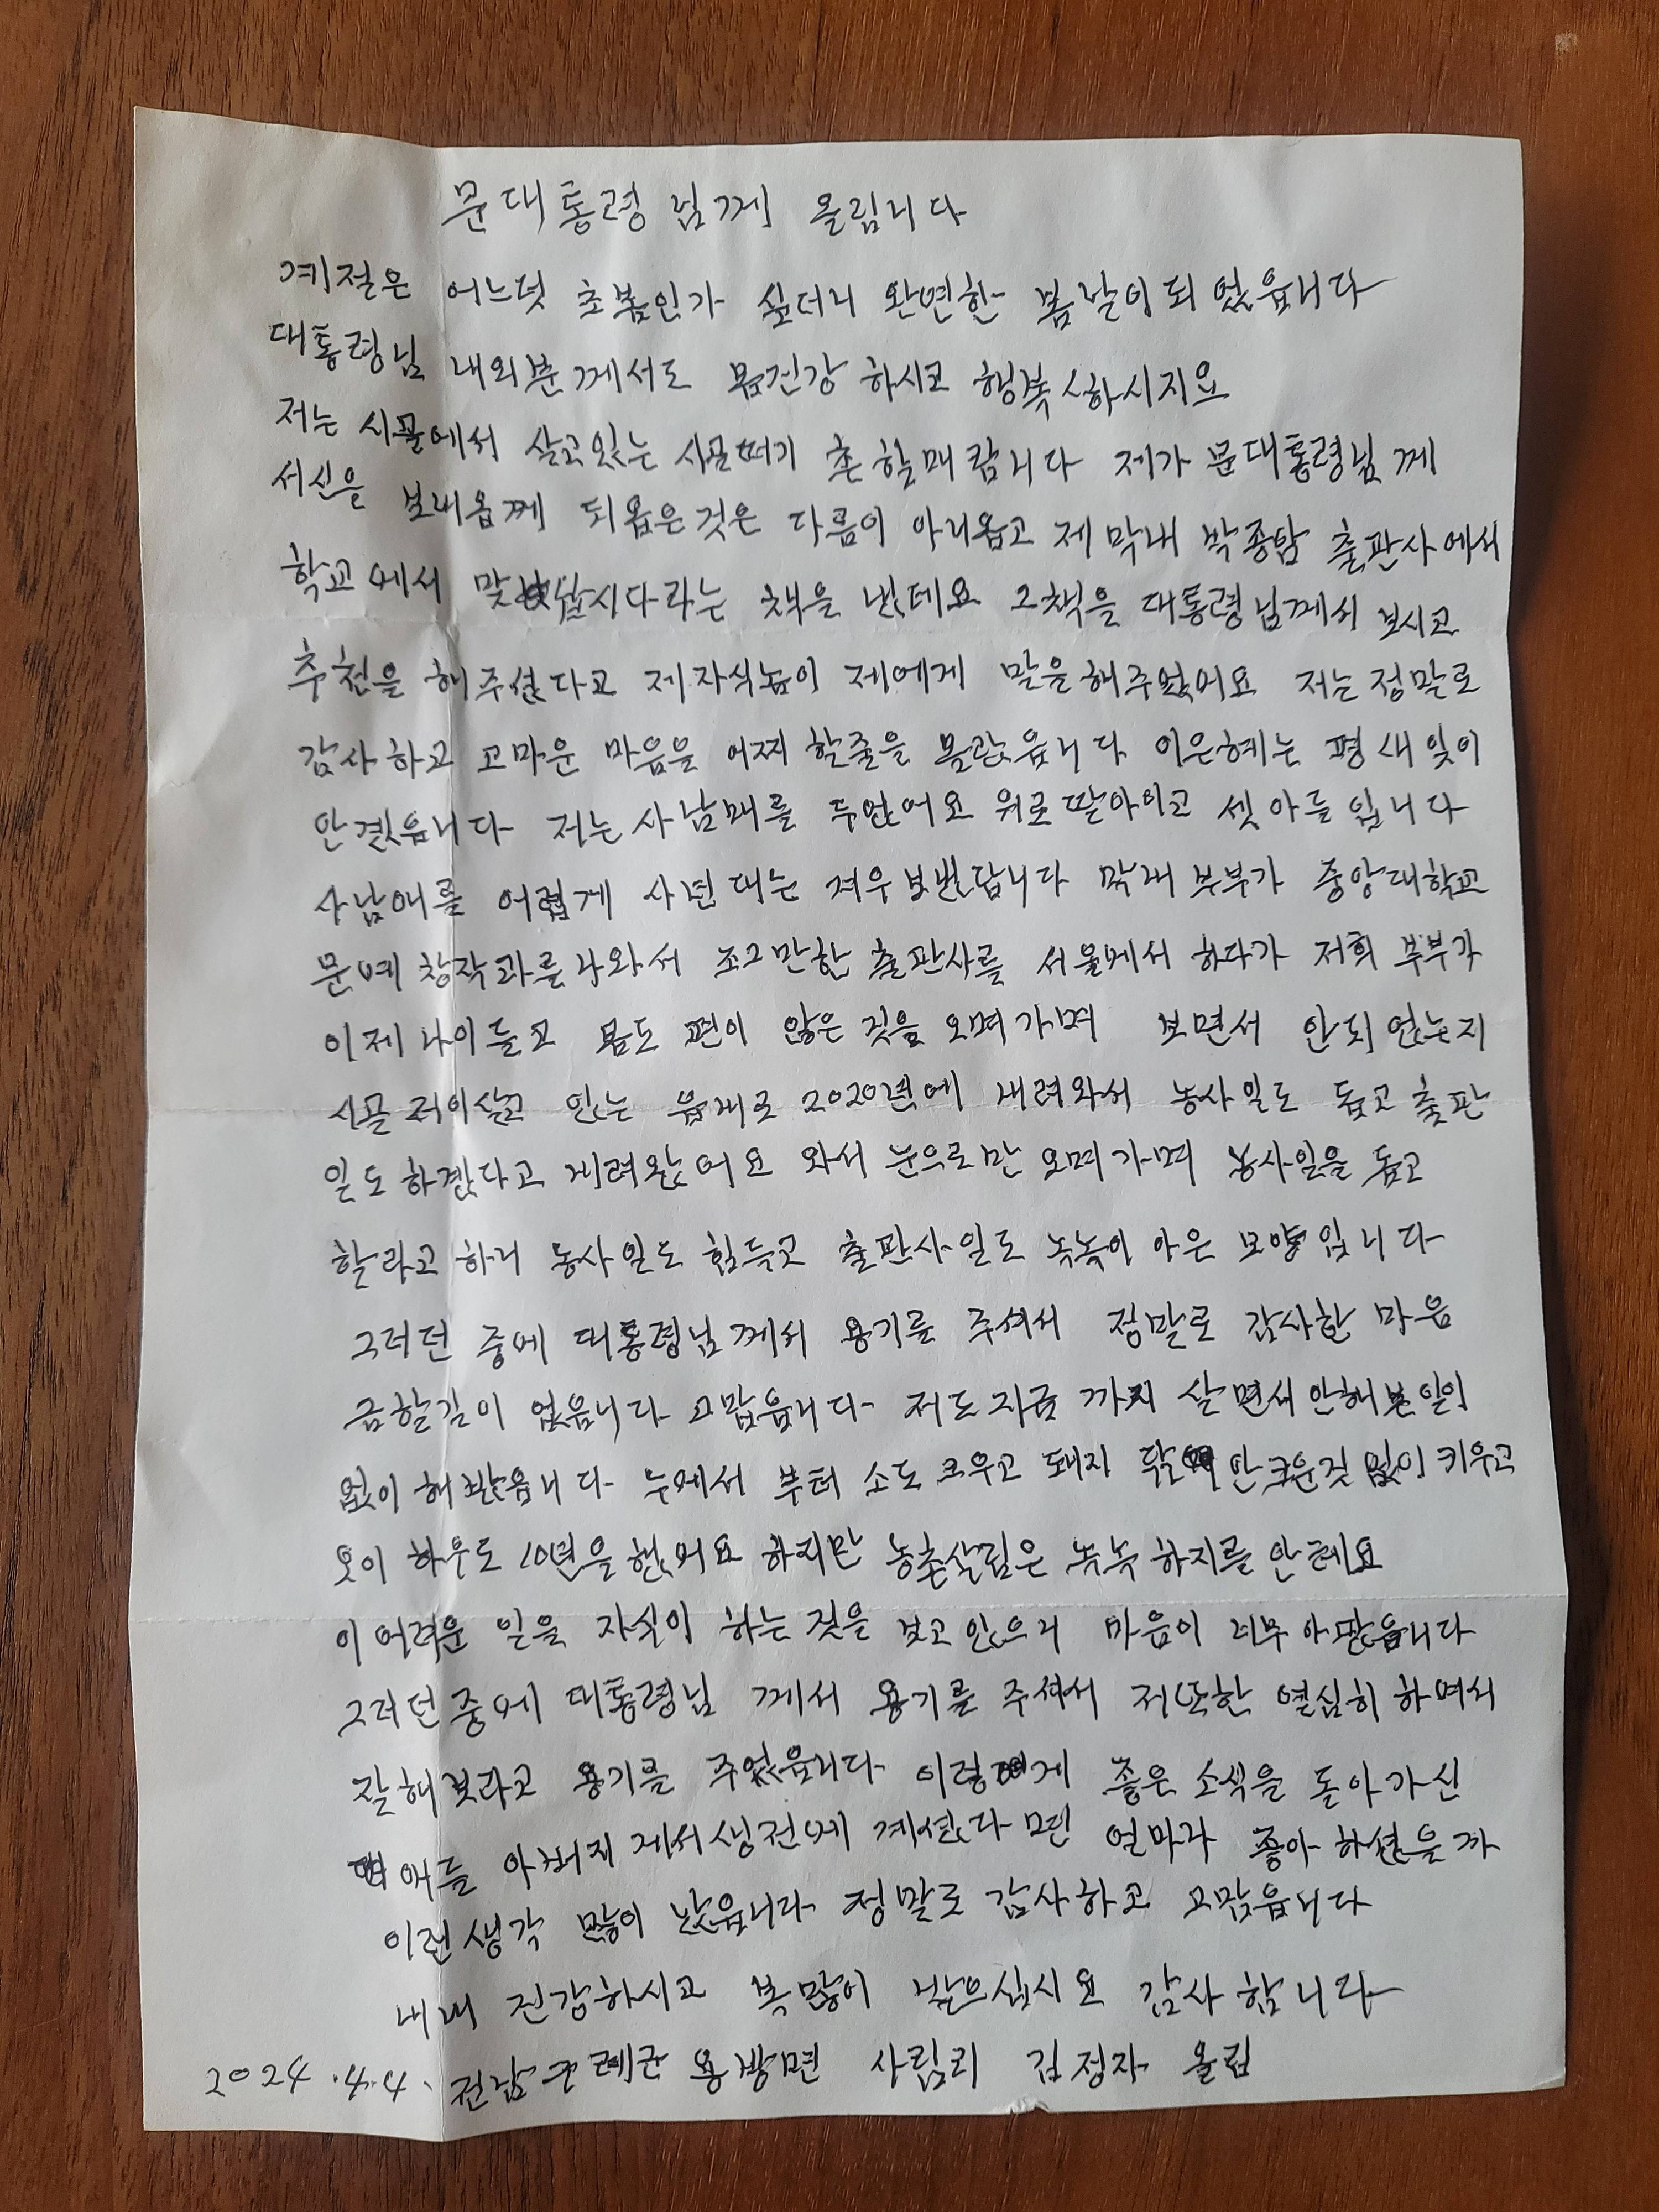 문대통령님께 올림니다
계절은 어느덧 초봄인가 싶더니 완연한 봄날이되었읍니다
대통령님 내외분께서도 몸건강 하시고 행복하시지요
저는 시골에서 살고있는 시골떠기 촌할매랍니다 제가 문대통령님께
서신을 보내옵게 되옵은것은 다름이 아니옵고 제막내 박종암 출판사에서
학교에서 맞 시다라는 책을 냈데요 그책을 대통령님께서 보시고
추천을 해주셨다고 제자식놈이 제에게 말을해주었어요 저는정말로
감사하고 고마운 마음을 어찌 할줄을 몰랐읍니다 이은혜는 평생잊이
안겠읍니다 저는사남매를 두었어요 위로딸아이고 셋아들입니다
사남애를 어렵게 사년대는 겨우보냈답니다 막내부부가 중앙대학교
문예창작과를나와서 조그만한 출판사를 서울에서 하다가 저희부부가
이제나이들고 몸도 편이 않은 것을 오며가며 보면서 안되였는지
시골저이살고 있는 읍내로 2020년에 내려와서 농사일도 돕고출판
일도하겠다고 내려왔어요 와서 눈으로만 오며가며 농사일을 돕고
할라고하니 농사일도 힘들고 출판사일도 녹녹이 아은 모양입니다
그러던 중에 대통령님께서 용기를 주셔서 정말로 감사한 마음
금할길이 없읍니다 고맙읍니다 저도지금까지 살면서안해본일이
없이해봤읍니다 누에서 부터 소도키우고 돼지 안키운것없이키우고
오이하우도 10년을했어요 하지만 농촌살림은 녹녹하지를안레요
이어려운 일을 자식이 하는 것을 보고있으니 마음이 너무아팠읍니다
그러던중에 대통령님 께서 용기를 주셔서 저또한 열심히하며서
잘해보라고 용기를 주었읍니다 이렇게 좋은소식을 돌아가신
애들 아버지께서생전에 계셨다면 얼마나 좋아하셨을까
이런생각 많이 났읍니다 정말로 감사하고 고맙읍니다
내내 건강하시고 복많이 받으십시요 감사합니다
2024.4.4. 전남구례군 용방면 사림리 김정자 올림